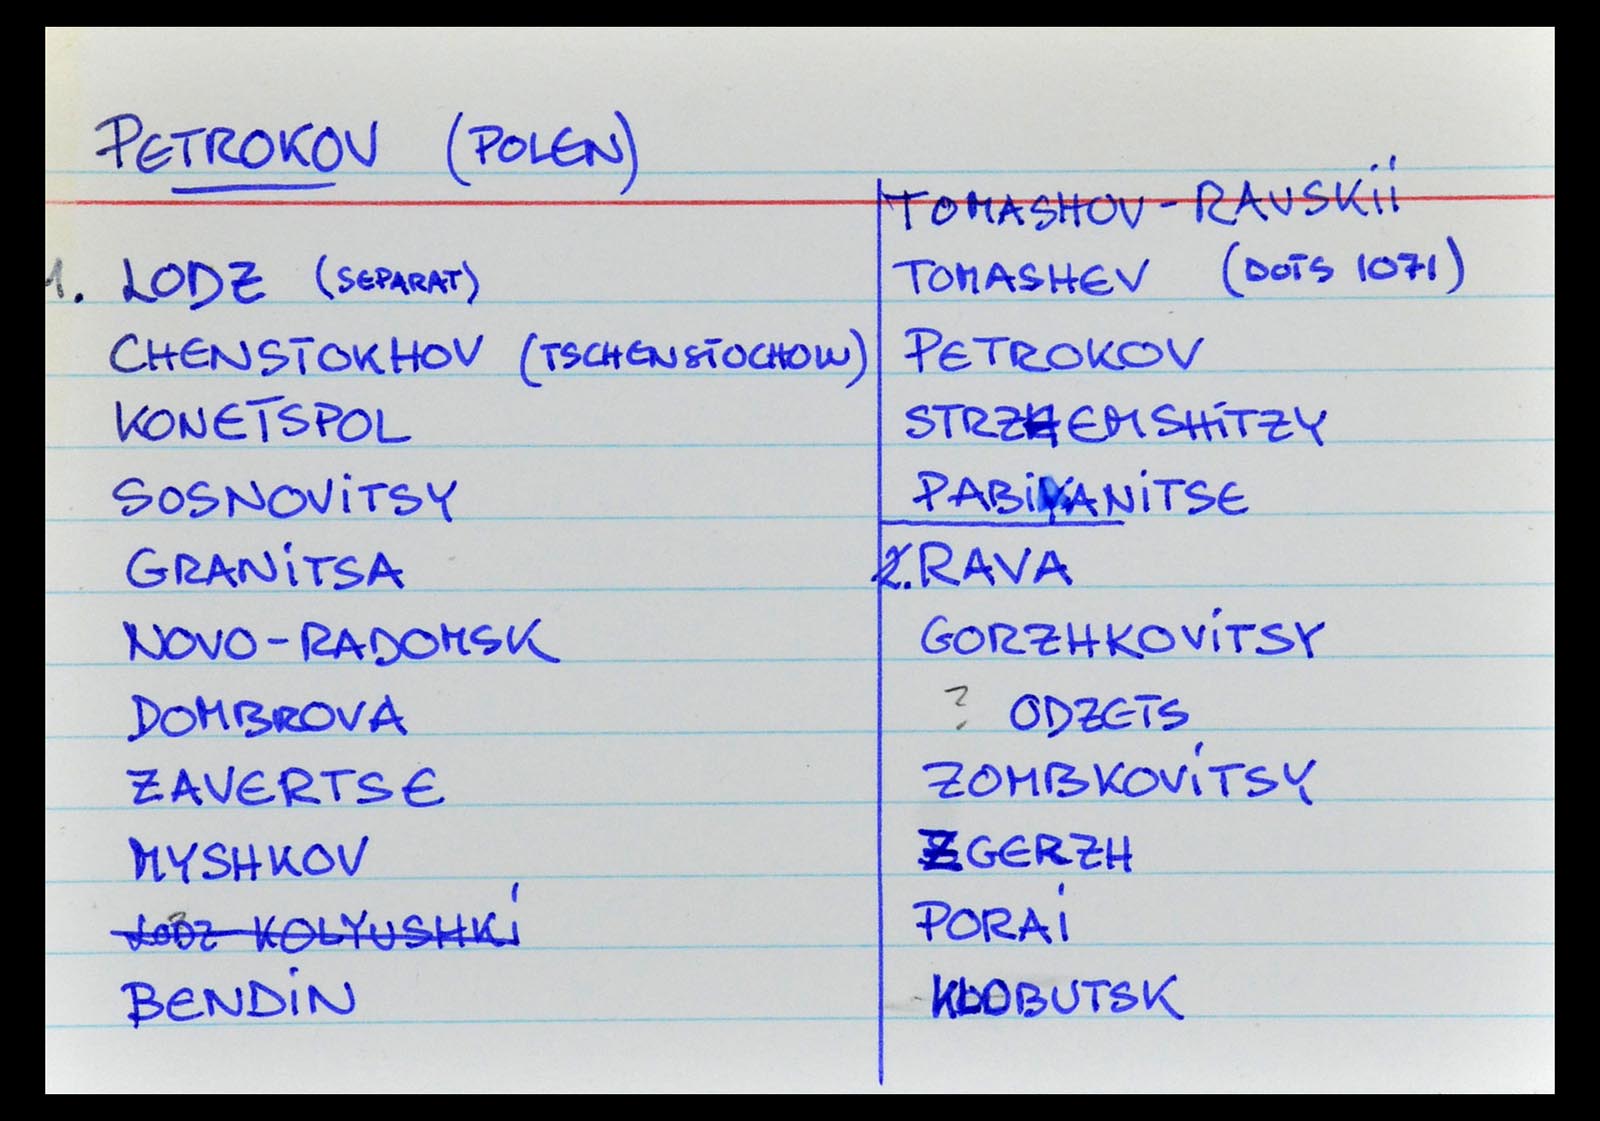 PETROKOV (POLEN)
1. LODZ (SEPARAT)
CHENSTOKHOV (TSCHENSTOCHOW)
KONETSPOL
SOSNOVITSY
GRANITSA
NOVO-RADOMSK
DOMBROVA
ZAVERTSE
MYSHKOV
LODZ KOLYUSHKI
BENDIN
TOMASHOV-RAVSKII
TOMASHEV (DOTS 1071)
PETROKOV
STRZEMSHITZY
PABIYANITSE
2. RAVA
GORZHKOVITSY
? ODZETS
ZOMBKOVITSY
ZGERZH
PORAI
KLOBUTSK